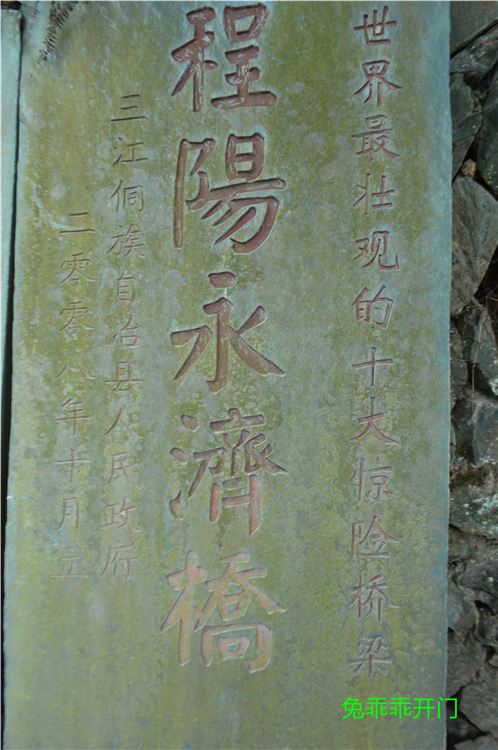 世界最壮观的十大惊险桥梁
程陽永濟橋
三江侗族自治县人民政府
二零零八年十月立
兔乖乖开门